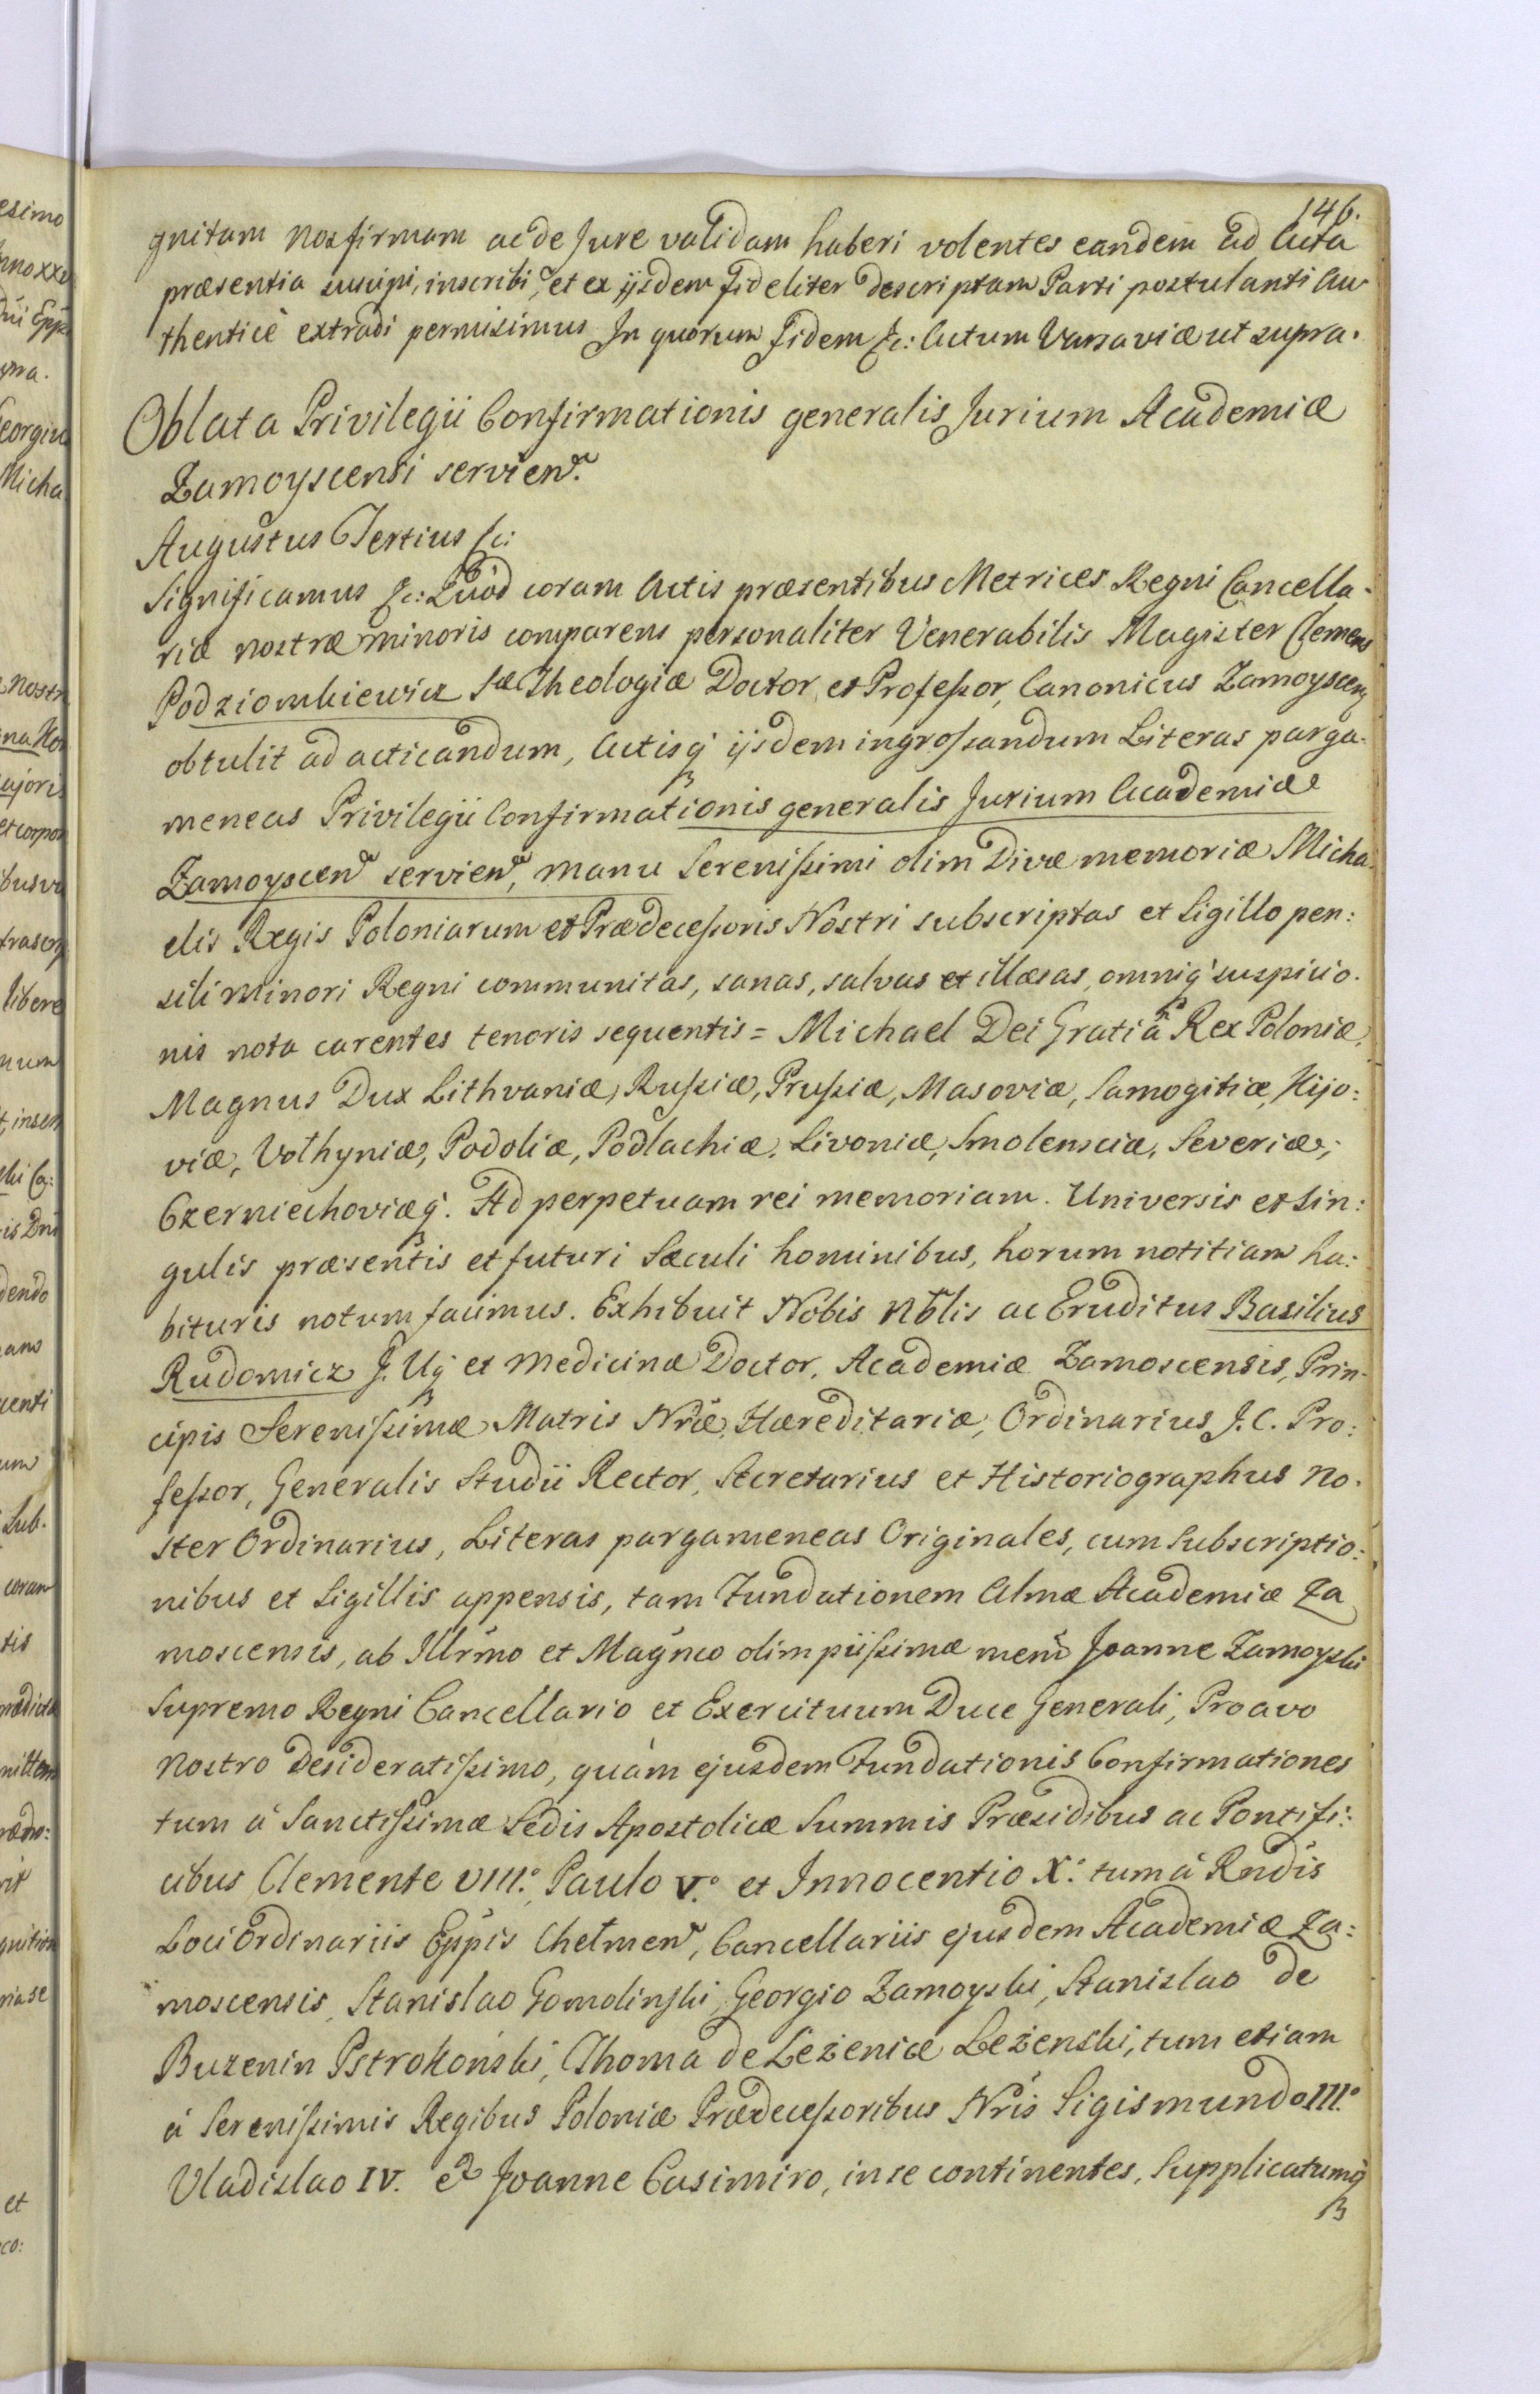 146.
gnitam nosfirmam ac de Jure validam haberi volentes eandem ad Acta
præsentia suscipi, inscribi, et ex ijsdem fideliter descriptam Parti postulanti Au-
thenticè extradi permisimus In quorum fidem &c: Actum Varsaviæ ut supra.
Oblata Privilegii Confirmationis generalis Jurium Academiæ
Zamoyscensi servien.
Augustus Tertius &c:
Significamus &c: Quod coram Actis præsentibus Metrices Regni Cancella-
riæ nostræ minoris comparens personaliter Venerabilis Magister Clemens
Podziomkiewicz Sæ Theologiæ Doctor et Professor, Canonicus Zamoyscen
obtulit ad acticandum, Actisq3 ijsdem ingrossandum Literas parga-
meneas Privilegii Confirmationis generalis Jurium Academiæ
Zamoyscen servien, manu Serenissimi olim Divæ memoriæ Micha-
elis Regis Poloniarum et Prædecessoris Nostri subscriptas et Sigillo pen:
sili Minori Regni communitas, sanas, salvas et illæsas, omniq3 suspicio-
nis nota carentes tenoris sequentis = Michael Dei Gratiâ Rex Poloniæ,
Magnus Dux Lithvaniæ, Russiæ, Prussiæ, Masoviæ, Samogitiæ, Kijo:
viæ, Volhyniæ, Podoliæ, Podlachiæ, Livoniæ, Smolensciæ, Severiæ,
Czerniechoviæq3. Ad perpetuam rei memoriam. Universis et Sin:
gulis præsentis et futuri Sæculi hominibus, horum notitiam ha:
bituris notum facimus. Exhibuit Nobis Nblis ac Eruditus Basilius
Rudomicz J. Uq3 et Medicinæ Doctor, Academiæ Zamoscensis, Prin-
cipis Serenissimæ Matris Nræ, Hæreditariæ, Ordinarius J. C. Pro:
fessor, Generalis Studii Rector, Secretarius et Historiographus No-
ster Ordinarius, Literas pargameneas Originales, cum Subscriptio:
nibus et Sigillis appensis, tam Fundationem Almæ Academiæ Za
moscensis, ab Illrmo et Magnco olim piissimæ mem Joanne Zamoyski
Supremo Regni Cancellario et Exercituum Duce Generali, Proavo
Nostro Desideratissimo, quàm ejusdem Fundationis Confirmationes
tum à Sanctissimæ Sedis Apostolicæ Summis Præsidibus ac Pontifi:
cibus Clemente VIII.° Paulo V.° et Innocentio X.° tum à Rndis
Loci Ordinariis Eppis Chelmen, Cancellariis ejusdem Academiæ Za:
moscensis, Stanislao Gomolinski, Georgio Zamoyski, Stanislao de
Buzenin Pstrokoński, Thoma de Leżenice Leżenski, tum etiam
à Serenissimis Regibus Poloniæ Prædecessoribus Nris Sigismundo III.°
Vladislao IV. et Joanne Casimiro, in se continentes, Supplicatumq3